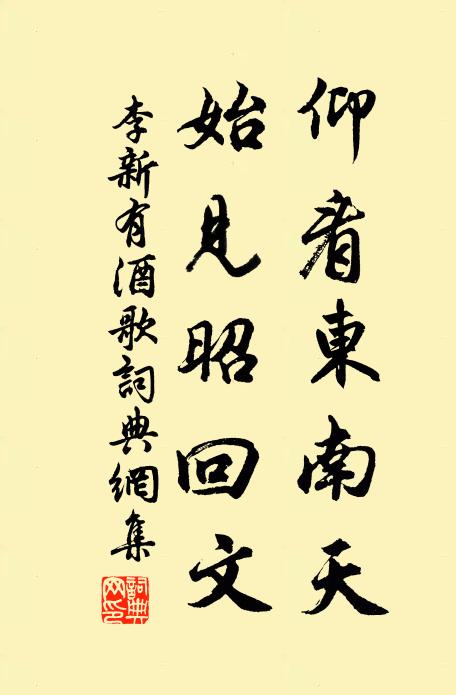 仰看東南天
始見昭回文
李新有酒歌詞典網集
詞典網印